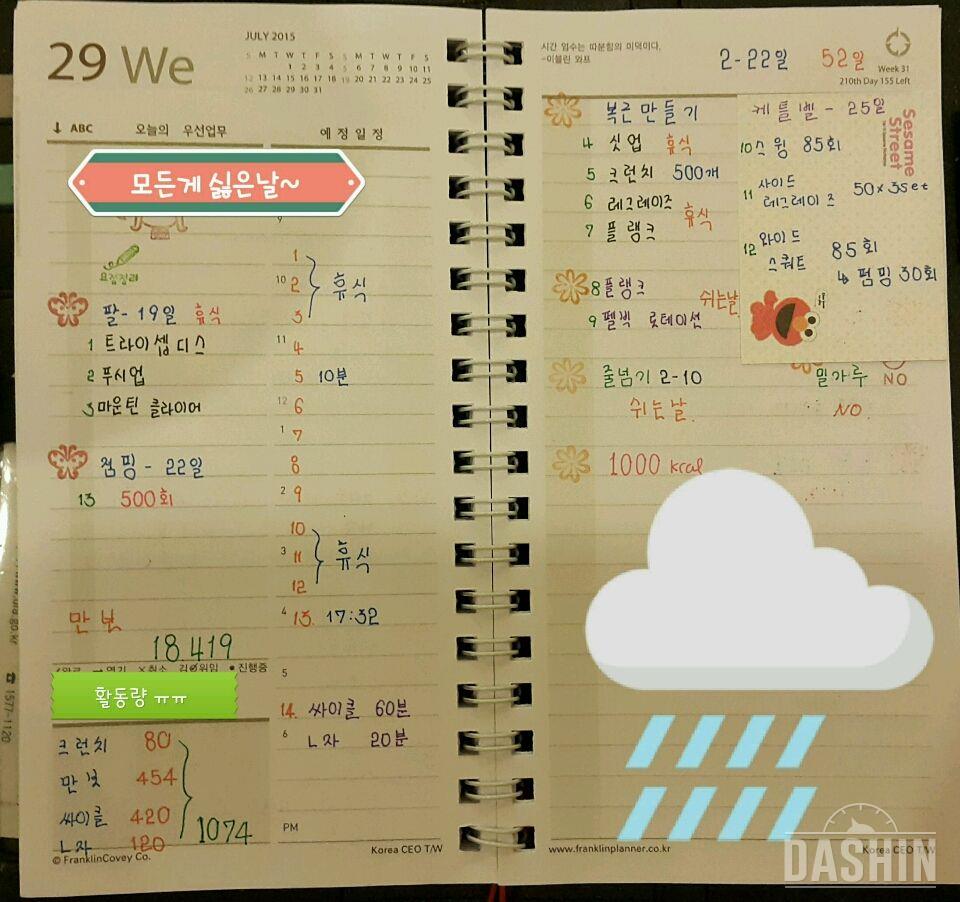 29 We
JULY 2015
S M T W T F S S M T W T F S
1 2 3 4 5 6 7 8 9 10 11
12 13 14 15 16 17 18 19 20 21 22 23 24 25
26 27 28 29 30 31
↓ ABC 오늘의 우선업무
예정일정
모든게 싫은날~
요점정리
팔- 19일 휴식
1 트라이셉 디스
2 푸시업
3 마운틴 클라이머
점핑 - 22일
13 500회
만보
18.419
활동량 ㅠㅠ
크런치 80
만보 454
싸이클 420
L자 120
1074
© FranklinCovey Co.
9
1
10 2 휴식
3
11 4
5 10분
12 6
1 7
8
2 9
10
3 11 휴식
12
4 13. 17:32
5
14. 싸이클 60분
6 L자 20분
PM
Korea CEO T/W
시간 엄수는 따분함의 미덕이다.
-이블린 와프
2-22일 52일
Week 31
210th Day 155 Left
복근 만들기
4 싯업 휴식
5 크런치 500개
6 레그레이즈
휴식
7 플랭크
8 플랭크
쉬는날
9 펠빅 로테이션
케틀벨 - 25일
Sesame Street
10 스윙 85회
11 사이드 레그레이즈 50×3set
12 와이드 스쿼트 85회
↳ 펌핑 30회
줄넘기 2-10
쉬는날.
밀가루 NO
NO.
1000 kcal
www.franklinplanner.co.kr
Korea CEO T/W
DASHIN
1577-1120